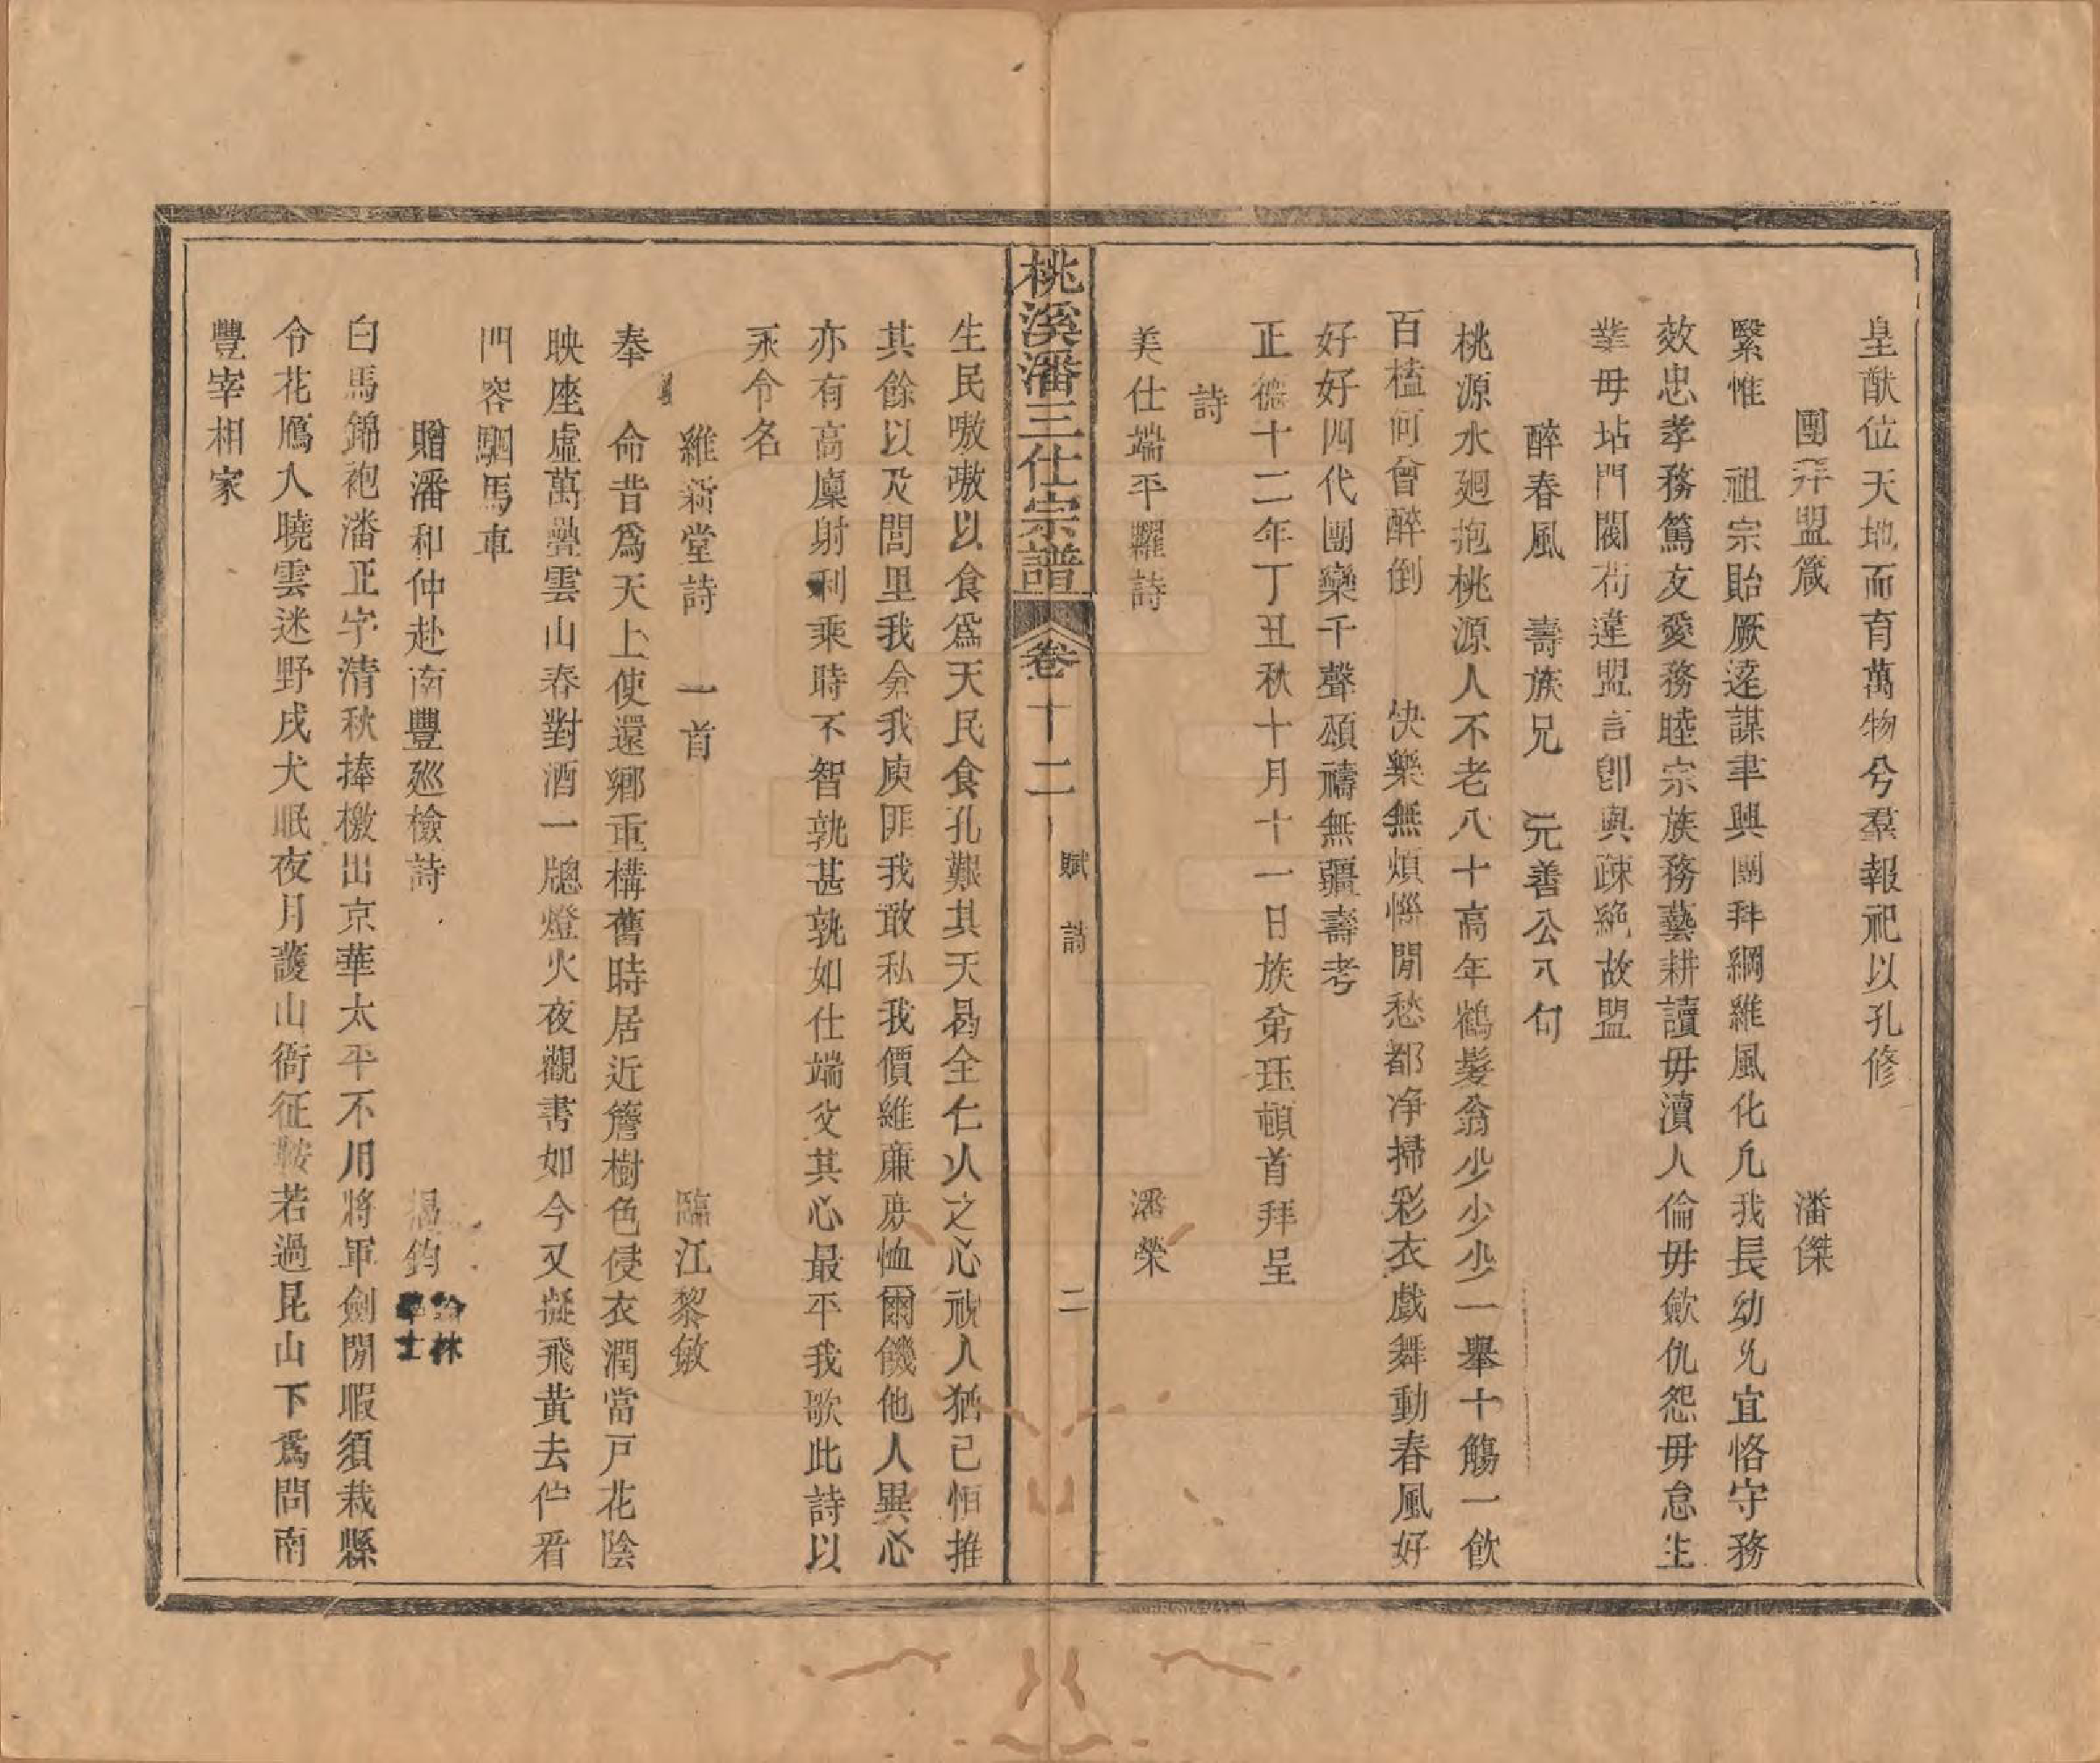 皇猷位天地而育萬物兮羣報祀以孔修
團拜盟箴　潘傑
繄惟　祖宗貽厥逵謀聿興團拜綱維風化凡我長幼允宜恪守務
效忠孝務篤友愛務睦宗族務藝耕讀毋瀆人倫毋歛仇怨毋怠生
業毋玷門閥苟違盟言卽與疎絕故盟
醉春風　壽族兄　元善公八句
桃源水廻抱桃源人不老八十高年鶴髮翁少少少少一舉十觴一飲
百榼何曾醉倒　快樂無煩惱閒愁都净掃彩衣戲舞動春風好
好好四代團欒千聲頌禱無疆壽考
正德十二年丁丑秋十月十一日族弟珏頓首拜呈
詩
美仕端平糶詩　潘榮
桃溪潘三仕宗譜　卷十二　賦　詩　二
生民嗷嗷以食爲天民食孔艱其天曷全仁人之心視人猶己恒推
其餘以及閭里我倉我庾匪我敢私我價維亷庻恤爾饑他人異心
亦有高廩射利乘時不智孰甚孰如仕端父其心最平我歌此詩以
永令名
維新堂詩　一首　臨江黎敏
奉　命昔爲天上使還鄉重構舊時居近簷樹色侵衣潤當戸花陰
映座虛萬疊雲山春對酒一牕燈火夜觀書如今又凝飛黃去伫看
門容駟馬車
贈潘和仲赴南豐廵檢詩　揭鈞　翰林學士
白馬錦袍潘正字清秋捧檄出京華太平不用將軍劍閒暇須栽縣
令花鴈入曉雲迷野戍犬眠夜月護山衙征鞍若過昆山下爲問南
豐宰相家